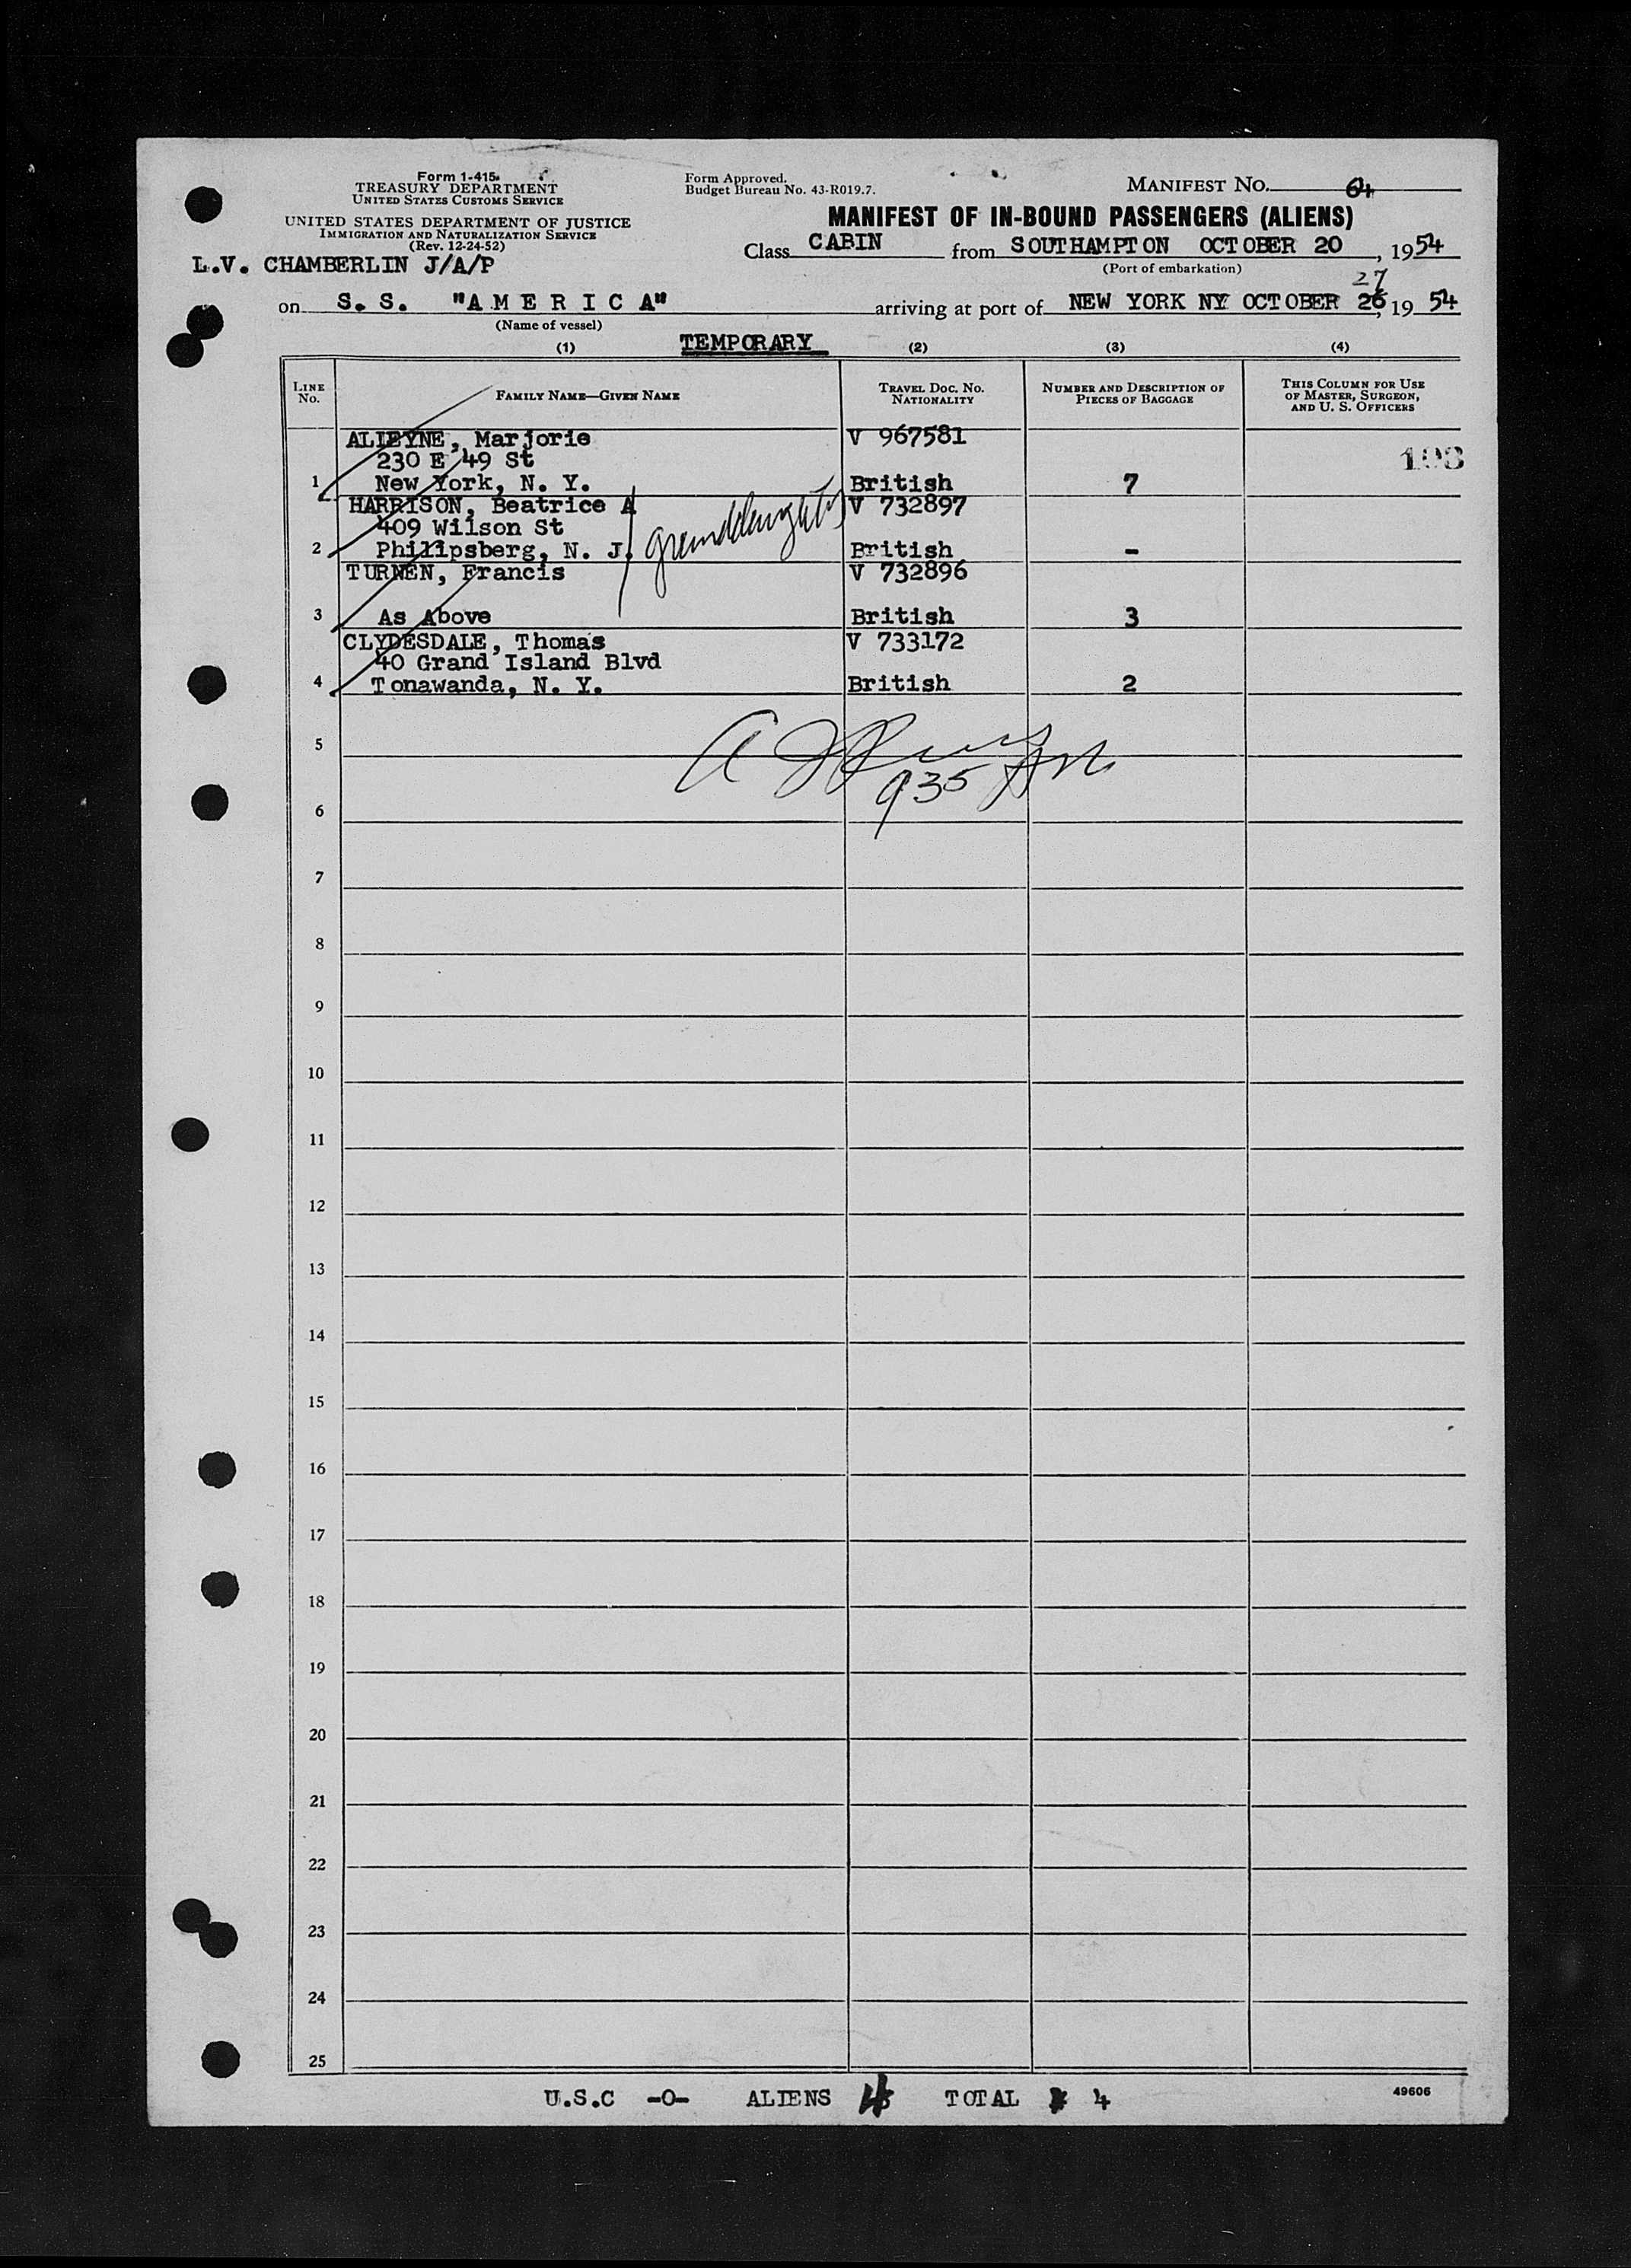 Form 1-415
TREASURY DEPARTMENT
UNITED STATES CUSTOMS SERVICE
UNITED STATES DEPARTMENT OF JUSTICE
IMMIGRATION AND NATURALIZATION SERVICE
(Rev. 12-24-52)
Form Approved.
Budget Bureau No. 43-R019.7.
MANIFEST NO.
MANIFEST OF IN-BOUND PASSENGERS (ALIENS)
Class CABIN from SOUTHAMPTON OCTOBER 20, 1954
(Port of embarkation)
L.V. CHAMBERLIN J/A/P
27
on S. S. "A M E R I C A" arriving at port of NEW YORK NY OCTOBER 26, 19 54
(Name of vessel)
TEMPORARY
(1) (2) (3) (4)
LINE NO. FAMILY NAME—GIVEN NAME TRAVEL DOC. NO. NATIONALITY NUMBER AND DESCRIPTION OF PIECES OF BAGGAGE THIS COLUMN FOR USE OF MASTER, SURGEON, AND U. S. OFFICERS
ALIEYNE, Marjorie V 967581
230 E 49 St
1 New York, N. Y. British 7
HARRISON, Beatrice A V 732897
409 Wilson St granddaughter
2 Philipsberg, N. J. British -
TURNEN, Francis V 732896
3 As Above British 3
CLYDESDALE, Thomas V 733172
40 Grand Island Blvd
4 Tonawanda, N. Y. British 2
5
935
6
7
8
9
10
11
12
13
14
15
16
17
18
19
20
21
22
23
24
25
U.S.C -0- ALIENS 4 TOTAL 4
49606